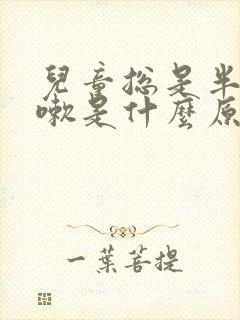 兒童總是半
嗽是什麼原
一葉菩提